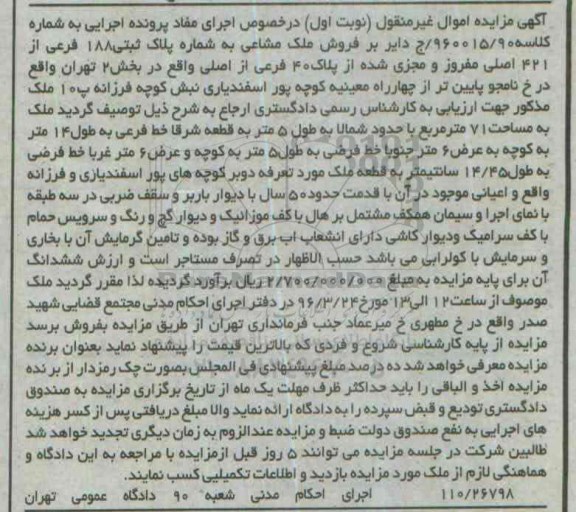 آگهی مزایده اموال غیرمنقول (نوبت اول) درخصوص اجرای مفاد پرونده اجرایی به شماره
کلاسه ۹۶۰۰۱۵/۹۰/ج دایر بر فروش ملک مشاعی به شماره پلاک ثبتی۱۸۸ فرعی از
۴۲۱ اصلی مفروز و مجزی شده از پلاک۴۰ فرعی از اصلی واقع در بخش۲ تهران واقع
در خ نامجو پایین تر از چهارراه معینیه کوچه پور اسفندیاری نبش کوچه فرزانه پ۱۰ ملک
مذکور جهت ارزیابی به کارشناس رسمی دادگستری ارجاع به شرح ذیل توصیف گردید ملک
به مساحت۷۱ مترمربع با حدود شمالا به طول ۵ متر به قطعه شرقا خط فرعی به طول۱۴ متر
به کوچه به عرض۶ متر جنوبا خط فرضی به طول۵ متر به کوچه و عرض۶ متر غربا خط فرضی
به طول۱۴/۴۵ سانتیمتر به قطعه ملک مورد تعرفه دوبر کوچه های پور اسفندیاری و فرزانه
واقع و اعیانی موجود در آن با قدمت حدود۵۰ سال با دیوار باربر و سقف ضربی در سه طبقه
با نمای اجرا و سیمان همکف مشتمل بر هال با کف موزائیک و دیوار گچ و رنگ و سرویس حمام
با کف سرامیک ودیوار کاشی دارای انشعاب اب برق و گاز بوده و تامین گرمایش آن با بخاری
و سرمایش با کولرابی می باشد حسب الاظهار در تصرف مستاجر است و ارزش ششدانگ
آن برای پایه مزایده به مبلغ ۲/۷۰۰/۰۰۰/۰۰۰ ریال برآورد گردیده لذا مقرر گردید ملک
موصوف از ساعت۱۲ الی۱۳ مورخ۹۶/۳/۲۴ در دفتر اجرای احکام مدنی مجتمع قضایی شهید
صدر واقع در خ مطهری خ میرعماد جنب فرمانداری تهران از طریق مزایده بفروش برسد
مزایده از پایه کارشناسی شروع و فردی که بالاترین قیمت را پیشنهاد نماید بعنوان برنده
مزایده معرفی خواهد شد ده درصد مبلغ پیشنهادی فی المجلس بصورت چک رمزدار از برنده
مزایده اخذ و الباقی را باید حداکثر ظرف مهلت یک ماه از تاریخ برگزاری مزایده به صندوق
دادگستری تودیع و قبض سپرده را به دادگاه ارائه نماید والا مبلغ دریافتی پس از کسر هزینه
های اجرایی به نفع صندوق دولت ضبط و مزایده عندالزوم به زمان دیگری تجدید خواهد شد
طالبین شرکت در جلسه مزایده می توانند ۵ روز قبل ازمزایده با مراجعه به این دادگاه و
هماهنگی لازم از ملک مورد مزایده بازدید و اطلاعات تکمیلیی کسب نمایند.
۱۱۰/۲۶۷۹۸ اجرای احکام مدنی شعبه ۹۰ دادگاه عمومی تهران